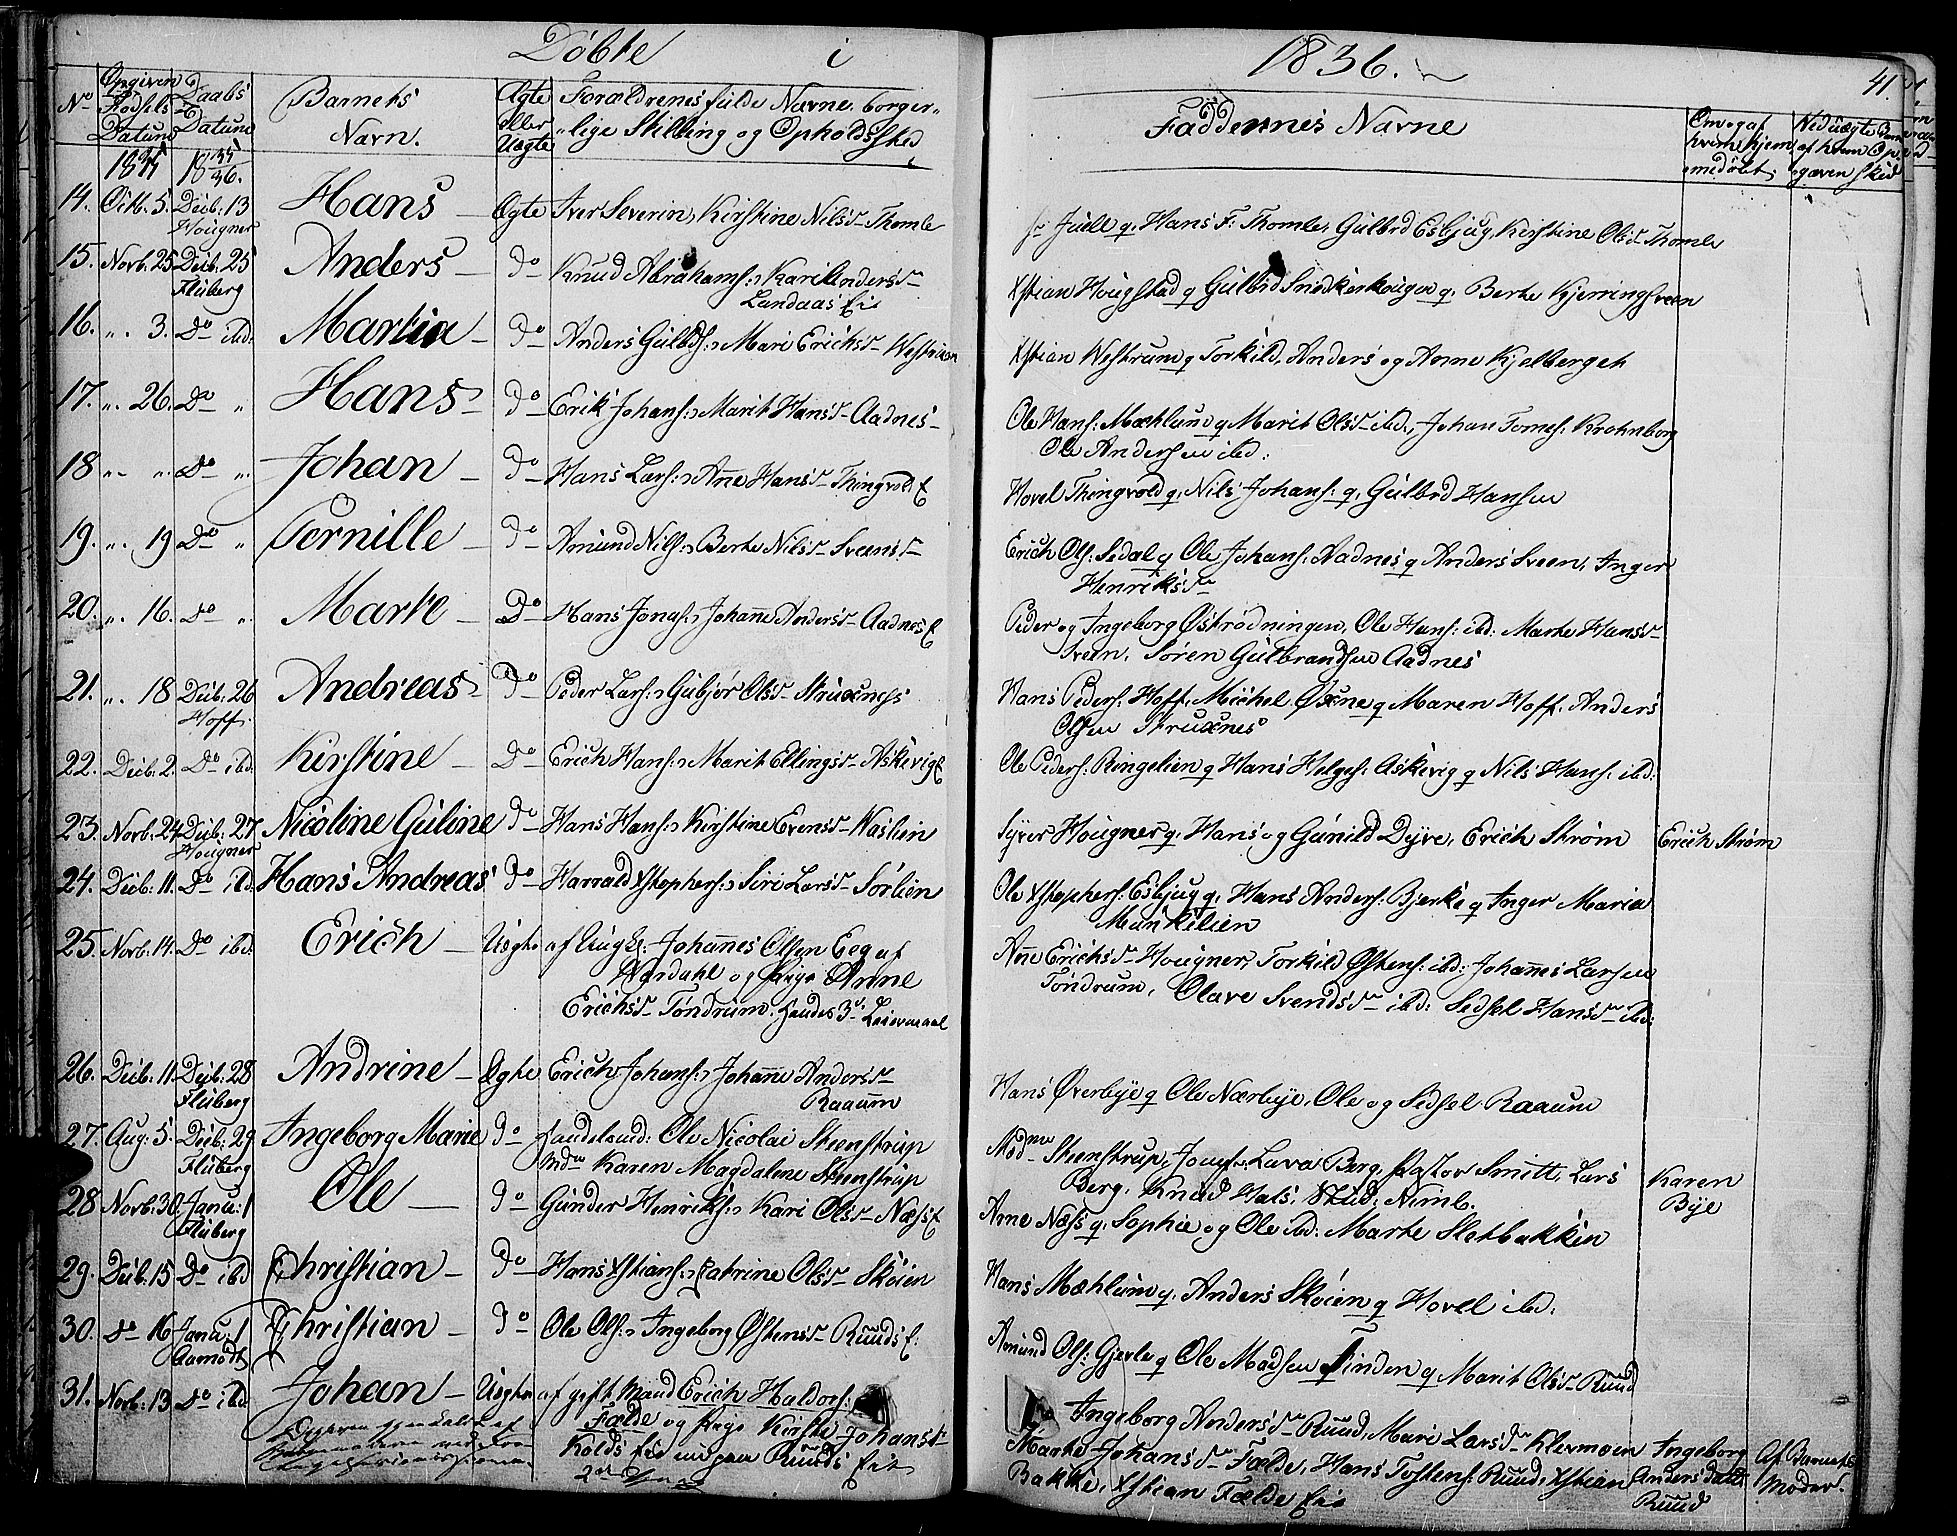 Döbte i 1836.
41.
No Opgiven Födsels Datum Daabs Datum Barnets Navn. Ægte eller Uægte Forældrenes fulde Navne, borgerlige Stilling og Opholdssted
Faddernes Navne
Om og af hvem hjemmedöbt
Ved uægte Børn af hvem Opgaven skeed
1835 1835/36.
14. Octb. 5. Decb: 13 Hougner Hans Ægte Iver Severin, Kirstine Nilsd Thomle
Juell q. Hans F: Thomle, Gulbrd Esbjug, Kirstine Olsd Thomle
15. Novb. 25 Decb. 25 Fluberg Anders do Knud Abrahams: Kari Andersd
Landaas Eie
Xstian Hougstad q Gulbrd Snedkerhougen q. Berte Kjerringsveen
16. ". 3. Do ibd: Martia do Anders Gulbds: Mari Ericksd Westrum
Xstian Westrum q Torkild, Anders og Anne Kjelberget
17. ". 26. Do " Hans do Erik Johans: Marit Hansd Aadnes
Ole Hans: Mæhlum q Marit Olsd ibd., Johan Tomes: Krohnborg
Ole Andersen ibd:
18 " ". Do ". Johan do Hans Lars: Ane Hansd Thingvold E
Hovel Thingvold q. Nils Johans: q. Gulbrd Hansen
19. ". 19 Do " Pernille do Amund Nils: Berte Nilsd Sveensd
Erich Ols: Sedal q Ole Johans: Aadnes q Anders Sveen, Inger
Henriksd
20. ". 16. Do ". Marte Do Hans Jonas: Johanne Andersd Aadnes E
Peder og Ingeborg Öströdningen, Ole Hans: ibd: Marte Hansd
Sveen, Sören Gulbrandsen Aadnes
21. ". 18 Decb. 26 Hoff. Andreas do Peder Lars: Gubjör Olsd Struxnes
Hans Peders: Hoff, Michel Øxne q Maren Hoff, Anders
Olsen Struxnes
22. Decb. 2. Do ibd. Kirstine Do Erich Hans: Marit Ellingsd Askevig E
Ole Peders: Ringelien q Hans Helges: Askevig q Nils Hans: ibd:
23. Novb. 24. Decb. 27 Hougner Nicoline Guline do Hans Hans: Kirstine Evensd Waslien
Syver Hougner q. Hans og Gunild Dyre, Erich Ström
Erich Ström
24. Decb. 11. Do ibd. Hans Andreas do Harrald Xstophers: Siri Larsd Sörlien
Ole Xstophers: Esbjug q. Hans Anders: Bjerke q Inger Maria
Munkelien
25. Novb. 14. Do ibd. Erich Uægte af Ung K. Johannes Olsen Eeg af
Aardahl og Pige Anne
Erichsd Töndrum. Hendes 3die Leiermaal
Ane Erichsd Hougner, Torkild Østens: ibd: Johannes Larsen
Töndrum, Olave Svendsd ibd: Sedsel Hansd ibd:
26. Decb: 11. Decb: 28 Fluberg Andrine Ægte Erich Johans: Johanne Andersd
Raaum
Hans Överbye q Ole Nærbye, Ole og Sedsel Raaum
27. Aug: 5. Decb. 29 Fluberg Ingeborg Marie do Handelsmd: Ole Nicolai Steenstrup
Mdm Karen Magdalene Steenstrup
Mdme Steenstrup, Jomf: Lava Berg, Pastor Smitt, Lars
Berg. Knud Hals, Stud: Nimb.
Karen
Bye
28 Novb. 30. Janu: 1 Fluberg Ole do Gunder Henriks: Kari Olsd Næss E
Arne Næss q. Sophie og Ole ibd: Marte Sletbakken
29. Decb. 15 Do ibd Christian do Hans Xstians: Catrine Olsd Sköien
Hans Mæhlum q. Anders Sköien q Hovel ibd:
30. Do 16 Janu: 1 Aamodt Christian do Ole Ols: Ingeborg Östensd Ruuds E:
Amund Ols: Gjerle q Ole Madsen Finden q Marit Olsd Ruud
31. Novb. 13 Do ibd Johan Uægte af gift Mand Erich Haldors:
Fælde og Pige Kirsti Johansd
Kolds Eie Ruuds Eie
Ingeborg Andersd Ruud, Mari Larsd Klermoen
Marte Johansd Fælde, Hans Tostens: Ruud, Xstian
Bakke, Xstian Fælde Eie
Ingeborg
Andersdatt
Ruud
Af Barnets
Moder.